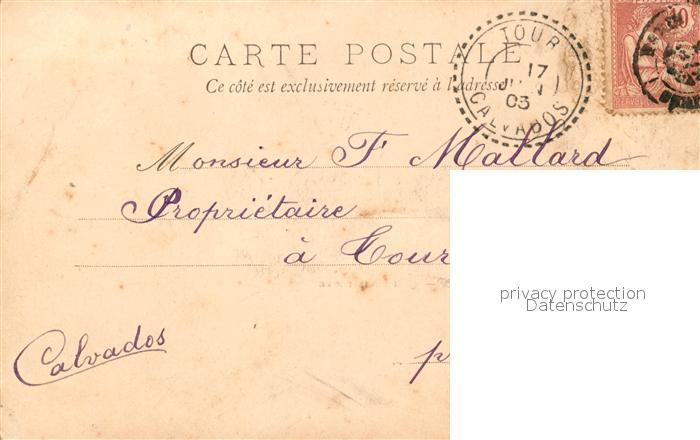 CARTE POSTALE
Ce côté est exclusivement réservé à l'adresse
TOUR
17
JUIN
03
CALVADOS
10
Monsieur F Mallard
Propriétaire
à Tour
Calvados
p
privacy protection
Datenschutz